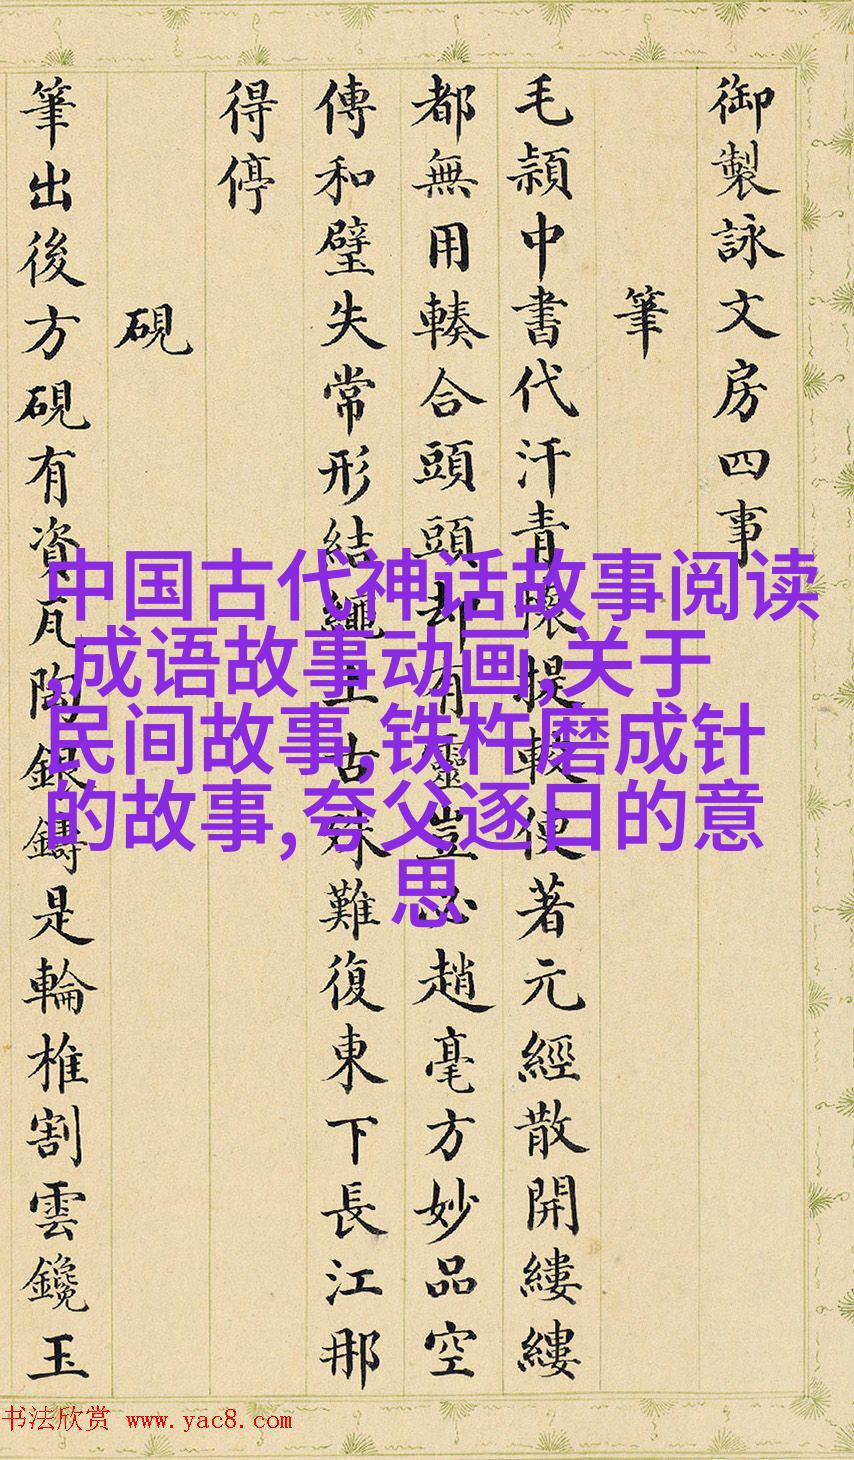 御製詠文房四事
筆
毛穎中書代汗青懷提較便著元經散開縷縷
都無用輳合頭頭却有靈豈必趙毫方妙品空
傳和璧失常形結繩上古殊難復東下長江那
得停
硯
筆出後方硯有資瓦陶銀鑄是輪椎割雲鑱玉
中国古代神话故事阅读
,成语故事动画,关于
民间故事,铁杵磨成针
的故事,夸父逐日的意
思
书法欣赏 www.yac8.com